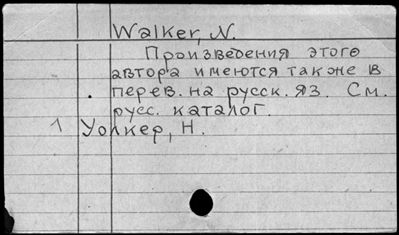 Walker, N.
Произведения этого
автора имеются также в
перев. на русск. яз. См.
русс. каталог.
1 Уолкер, Н.